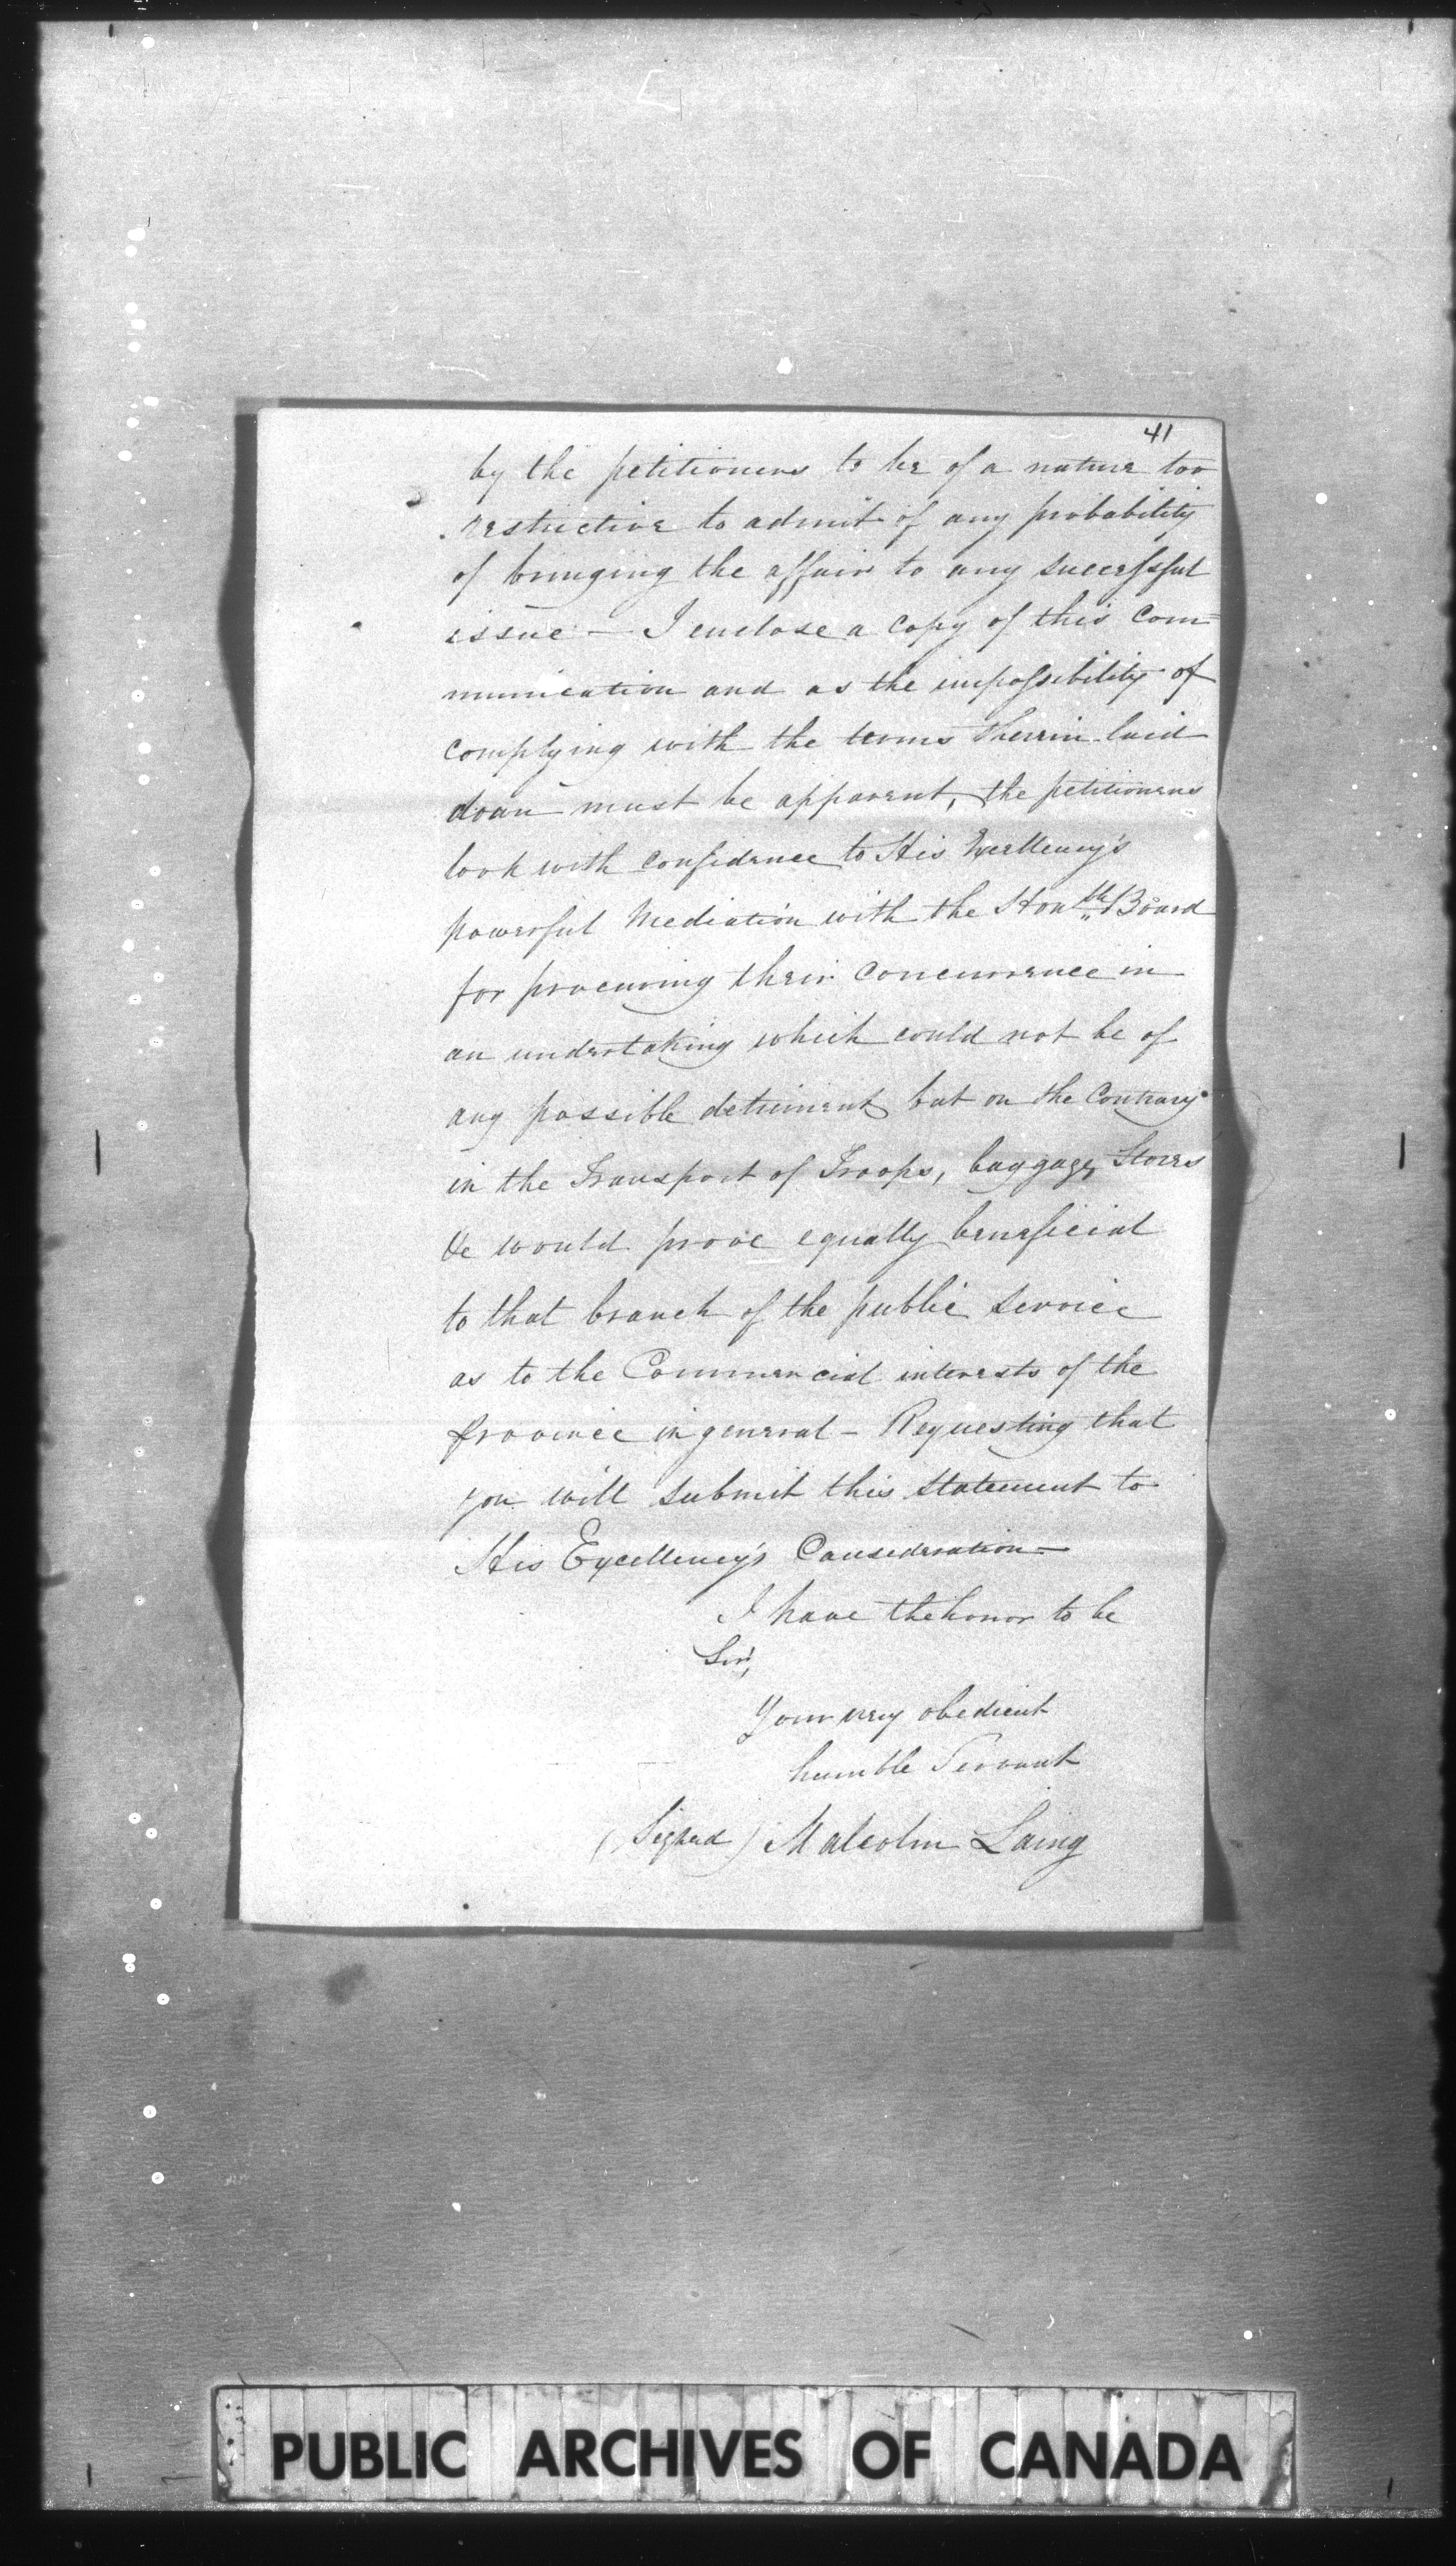 41
by the petitioners to be of a nature too
restrictive to admit of any probability
of bringing the affair to any successful
issue — I enclose a copy of this Com=
munication and as the impossibility of
complying with the terms therein laid
down must be apparent, the petitioners
look with confidence to His Excellency's
powerful Mediation with the Honble Board
for procuring their Concurrence in
an undertaking which could not be of
any possible detriment but on the Contrary
in the Transport of Troops, baggage, Stores
&c would prove equally beneficial
to that branch of the public Service
as to the Commercial interests of the
Province in general – Requesting that
you will submit this Statement to
His Excellency's Consideration —
I have the honor to be
Sir,
Your very obedient
humble Servant
(Signed) Malcolm Laing
PUBLIC ARCHIVES OF CANADA